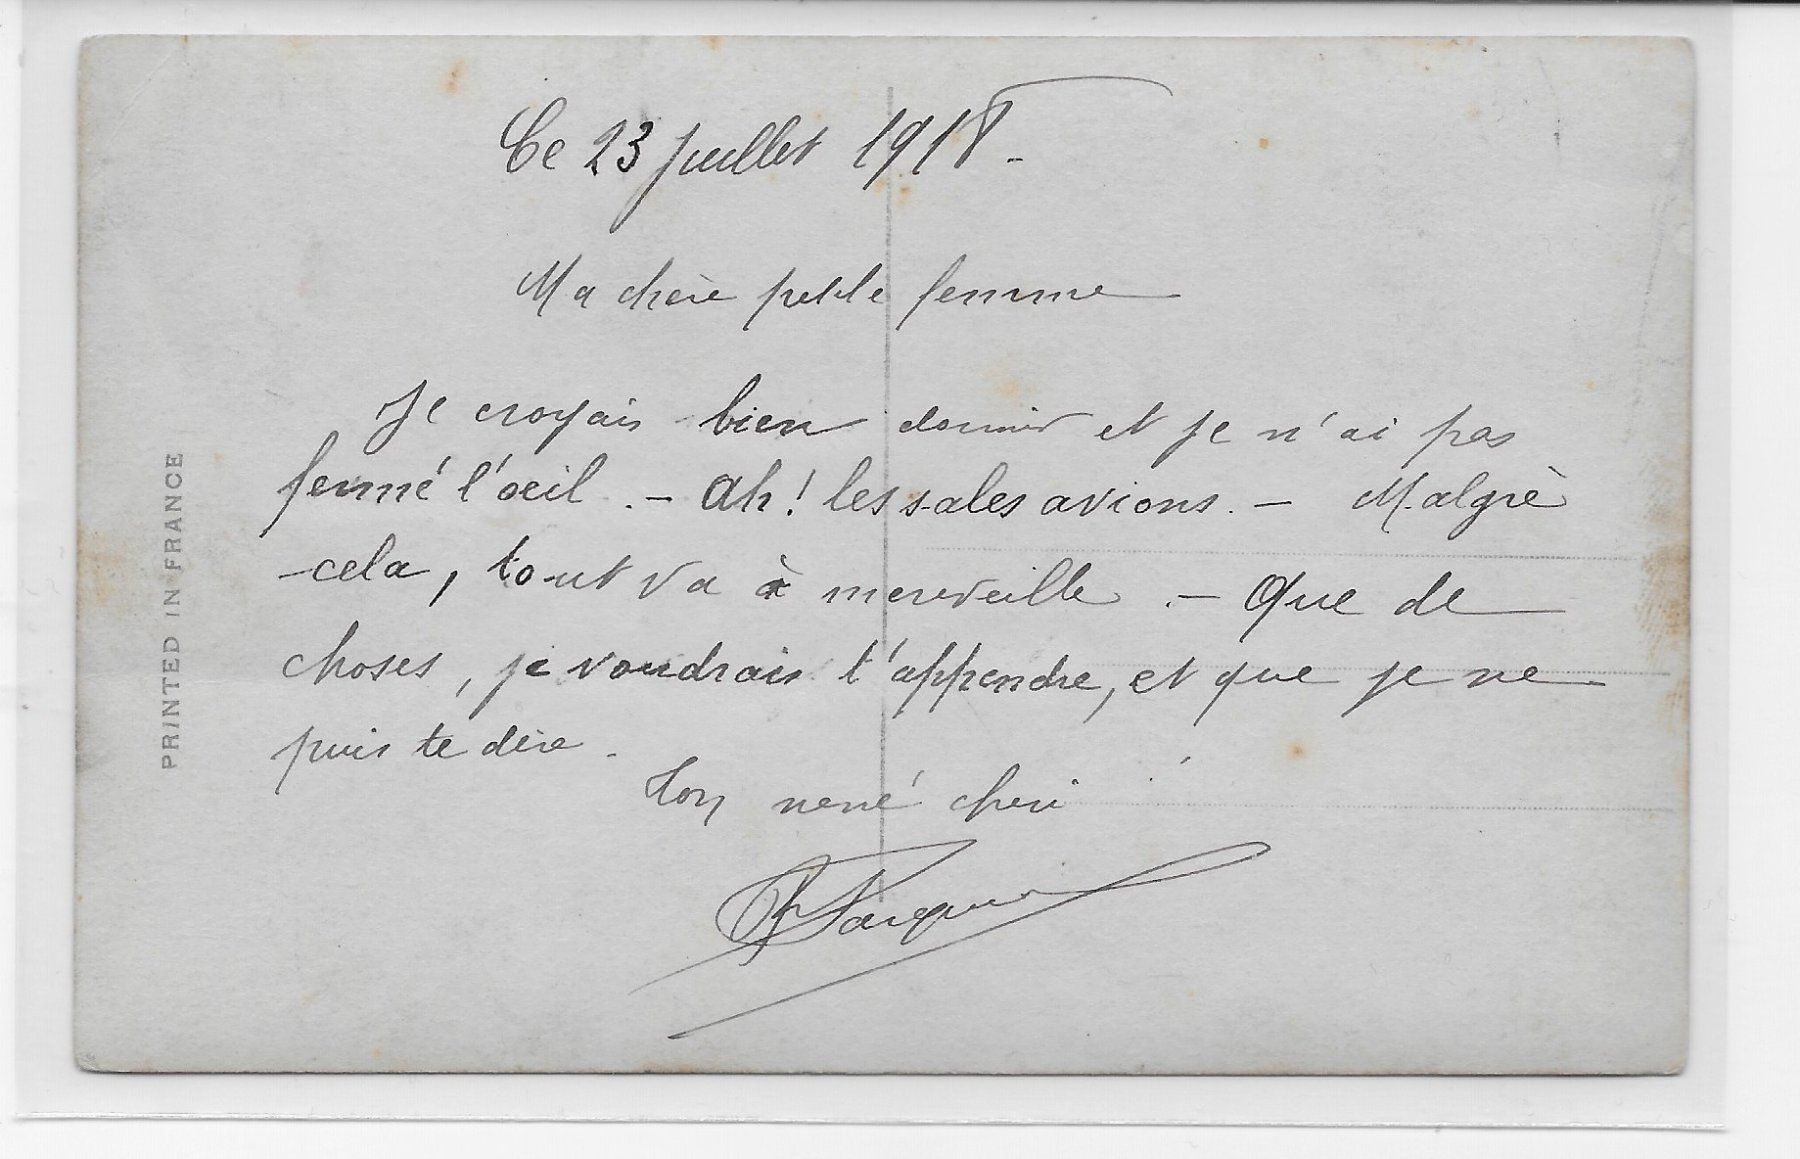 Ce 23 Juillet 1918 -
Ma chère petite femme
Je croyais bien dormir et je n'ai pas
fermé l'oeil . - Ah ! les sales avions . - Malgré
cela , tout va à merveille . - Que de
choses , je voudrais t'apprendre, et que je ne
puis te dire .
Ton néné chéri
PRINTED IN FRANCE